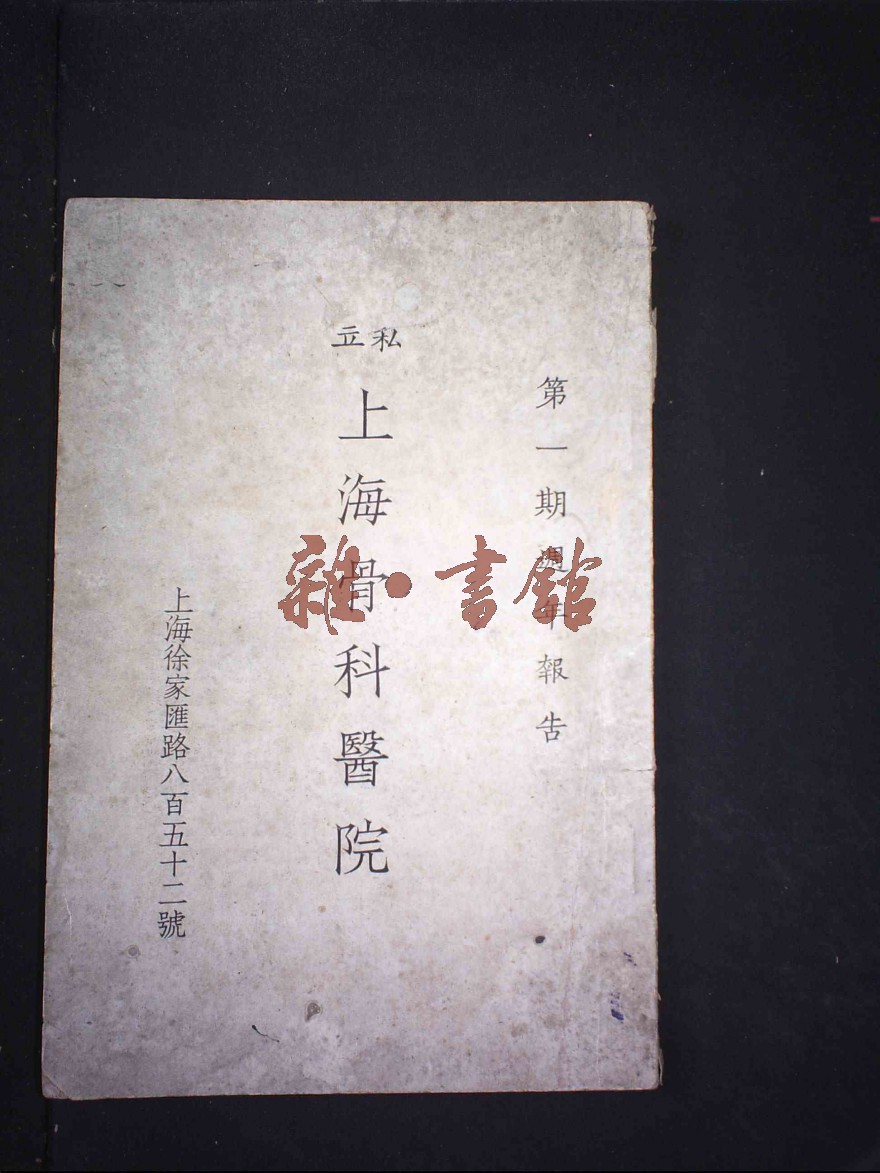 第一期週年報告
私立
上海骨科醫院
上海徐家匯路八百五十二號
雜·書館